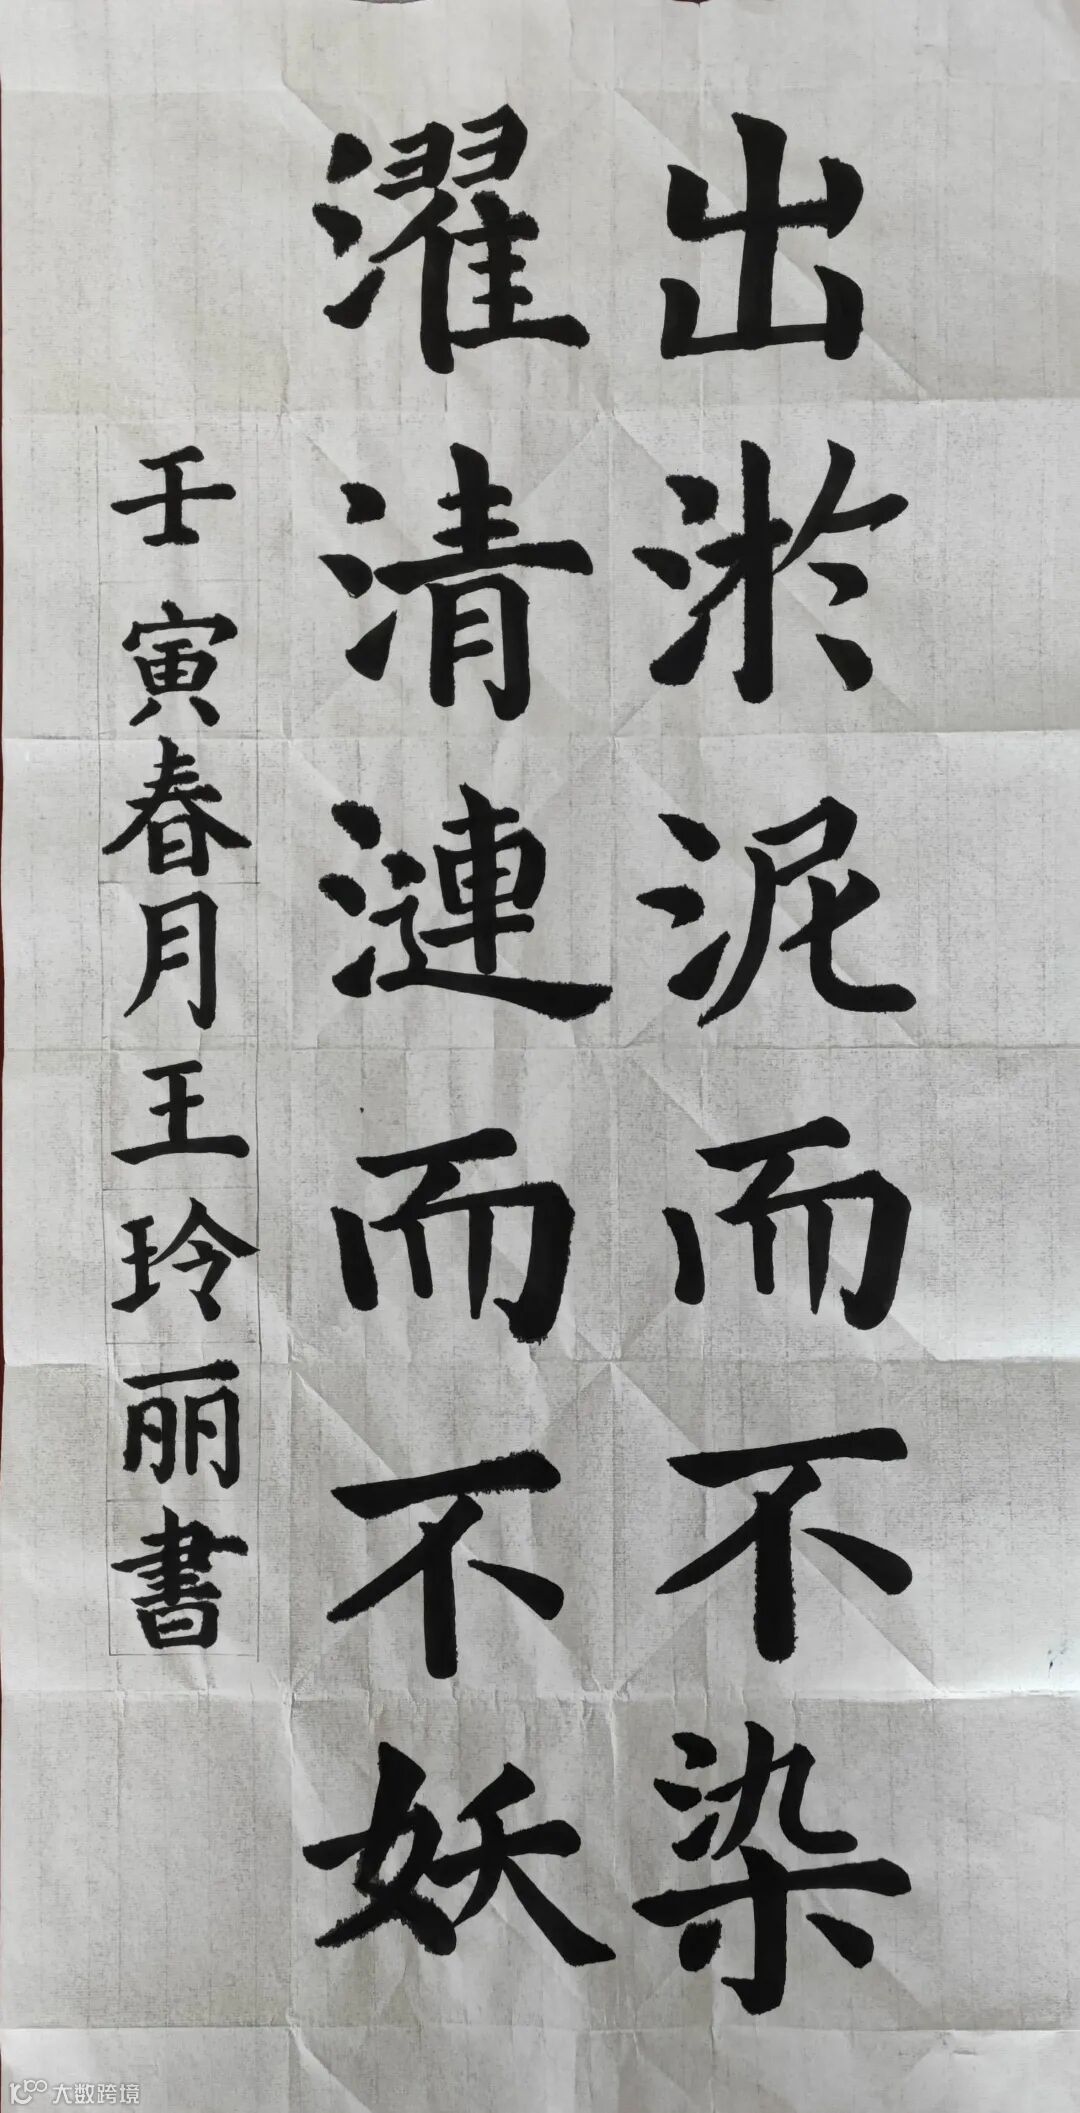 出淤泥而不染
濯清漣而不妖
壬寅春月王玲丽書
大数跨境